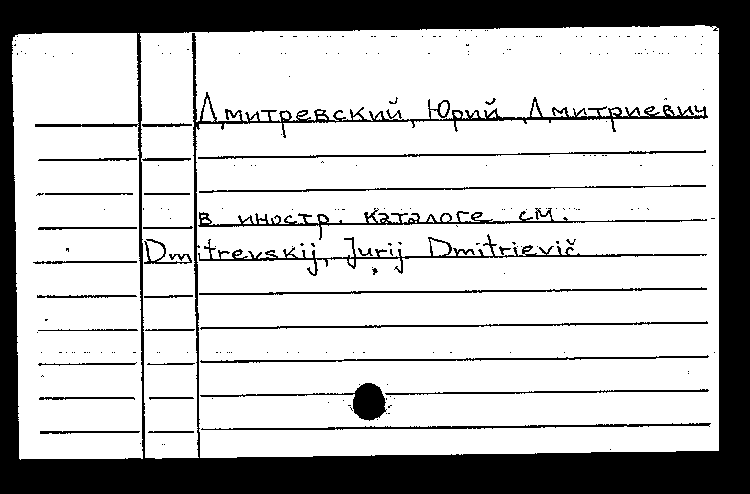 Дмитревский, Юрий Дмитриевич
в иностр. каталоге см.
Dmitrevskij, Jurij Dmitrievič